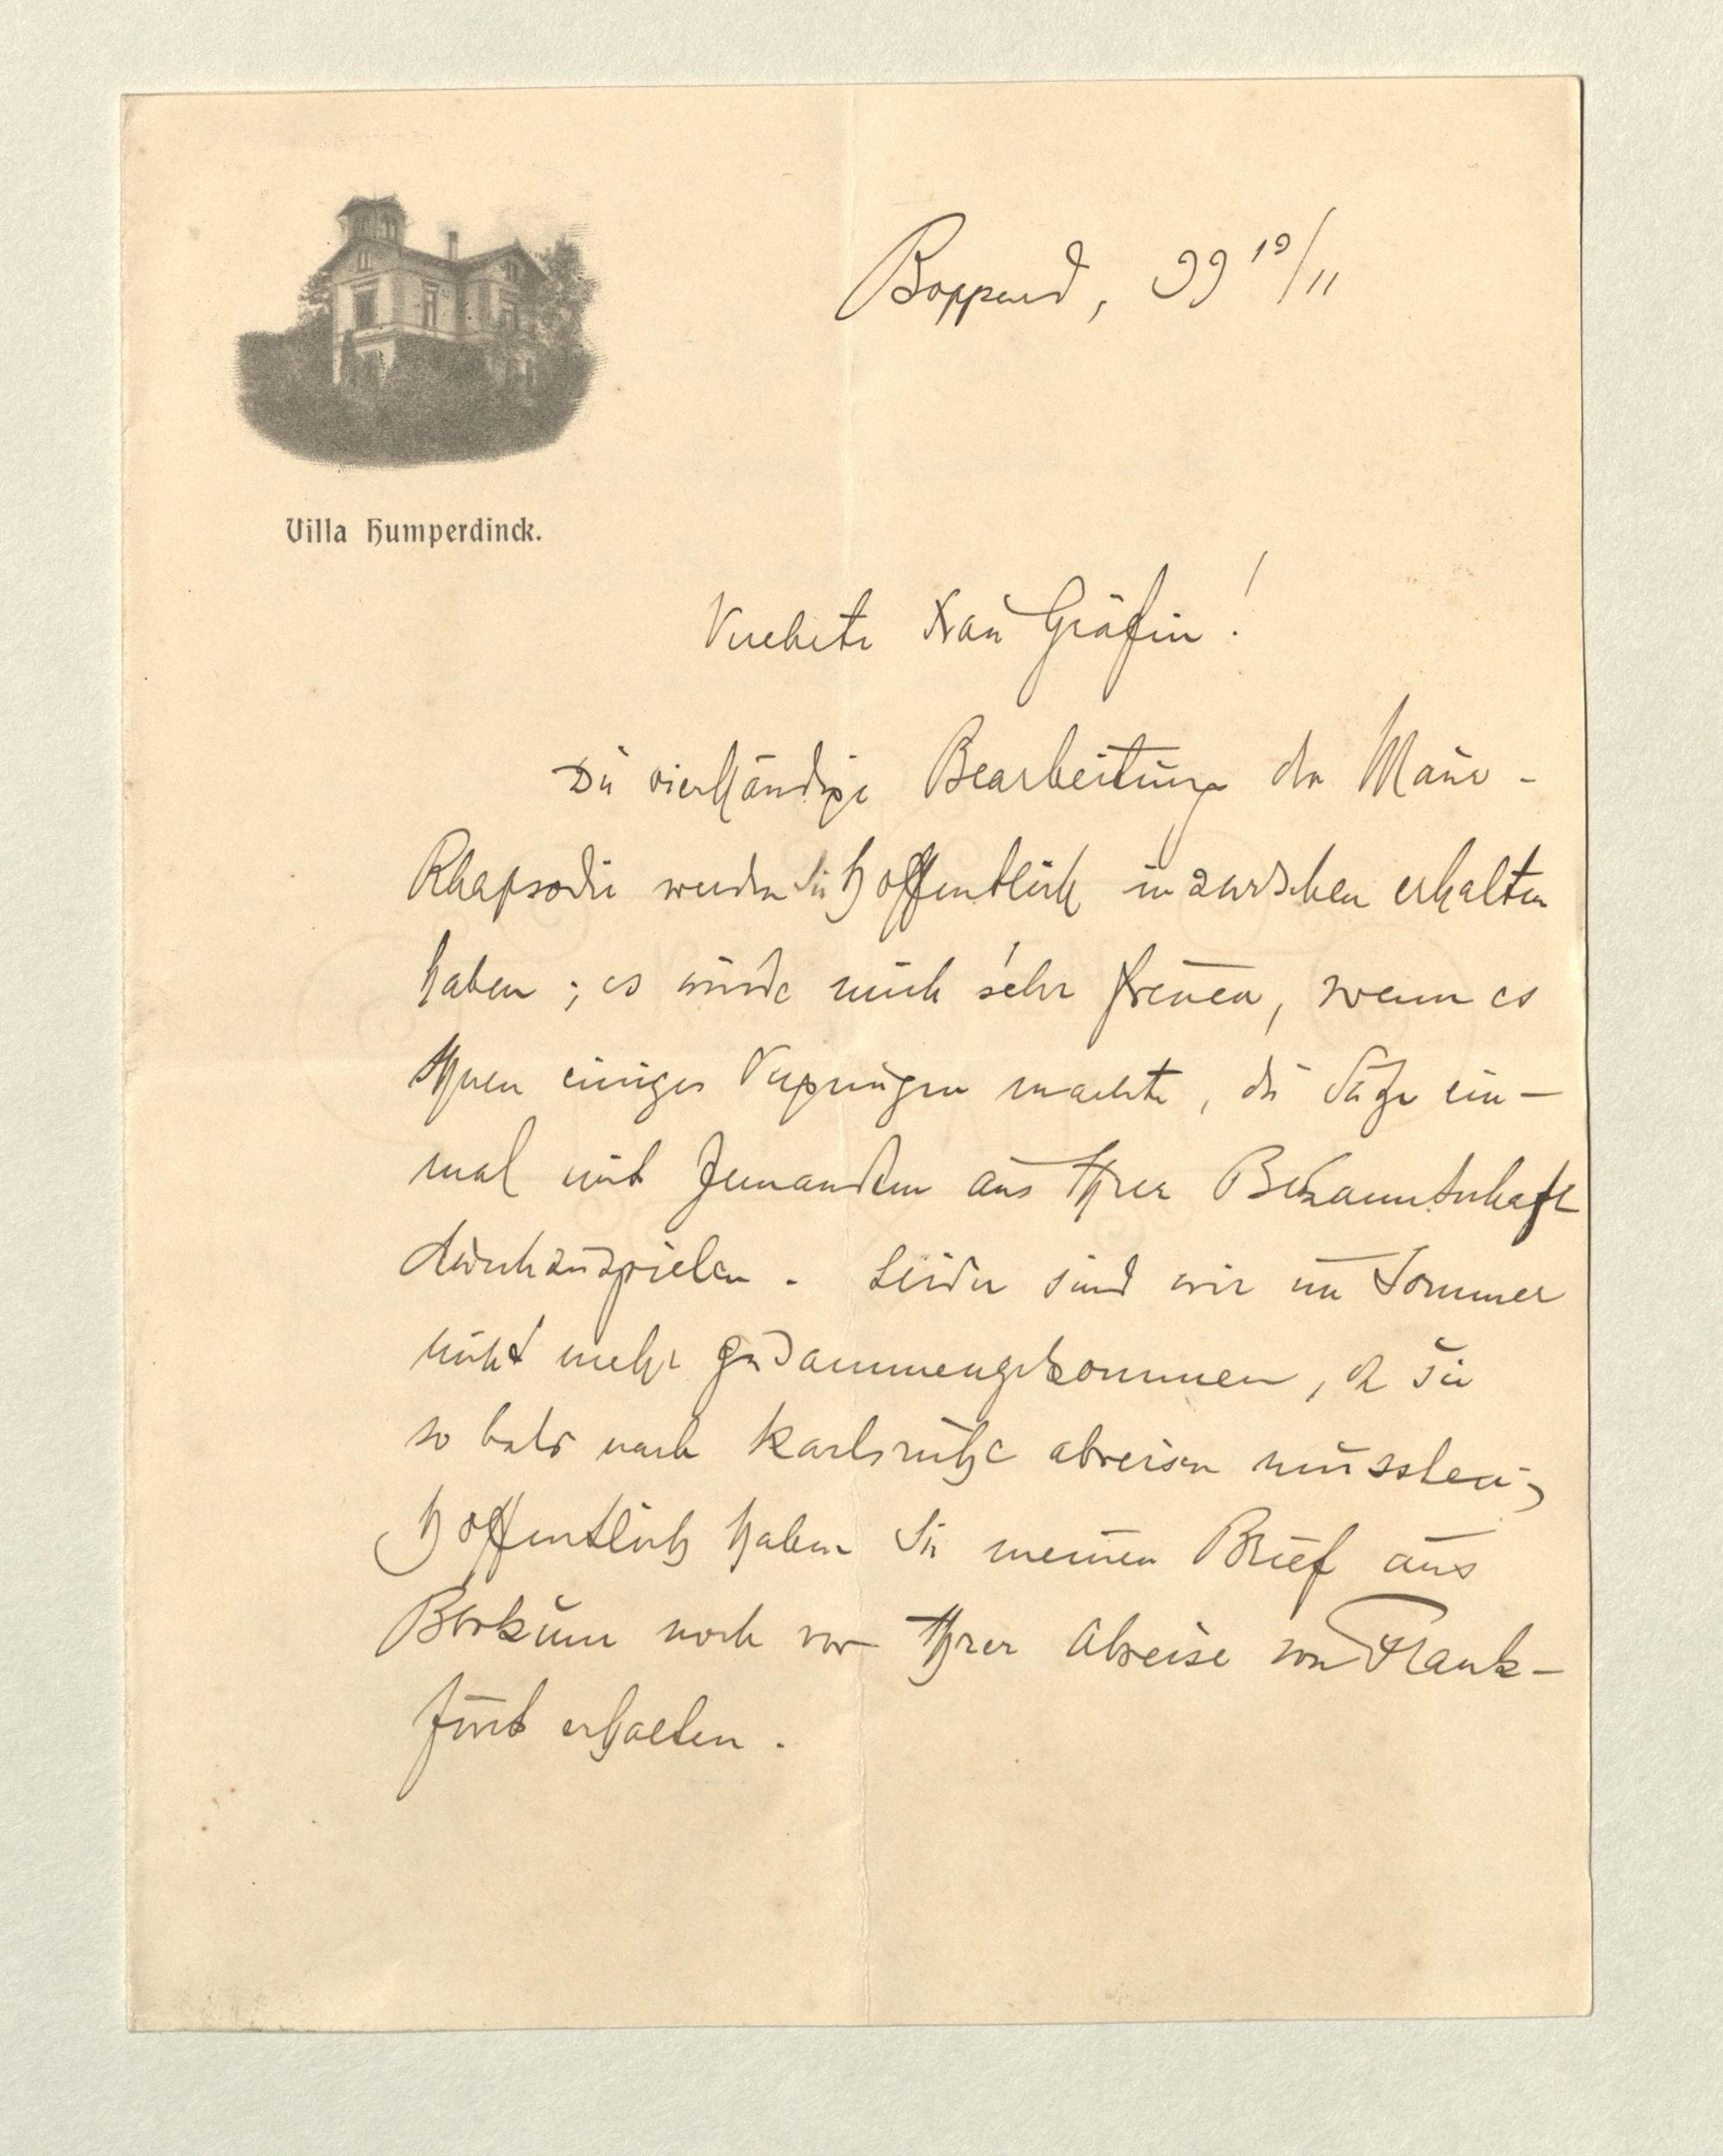 Villa Humperdinck.
Boppard, 99 19/11
Verehrte Frau Gräfin!
Die vierhändige Bearbeitung der Maur-
Rhapsodie werden Sie hoffentlich inzwischen erhalten
haben; es würde mich sehr freuen, wenn es
Ihnen einiges Vergnügen machte, die Sätze ein-
mal mit Jemandem aus Ihrer Bekanntschaft
durchzuspielen. Leider sind wir im Sommer
nicht mehr zusammengekommen, da Sie
so bald nach Karlsruhe abreisen mussten;
hoffentlich haben Sie meinen Brief aus
Borkum noch vor Ihrer Abreise von Frank-
furt erhalten.